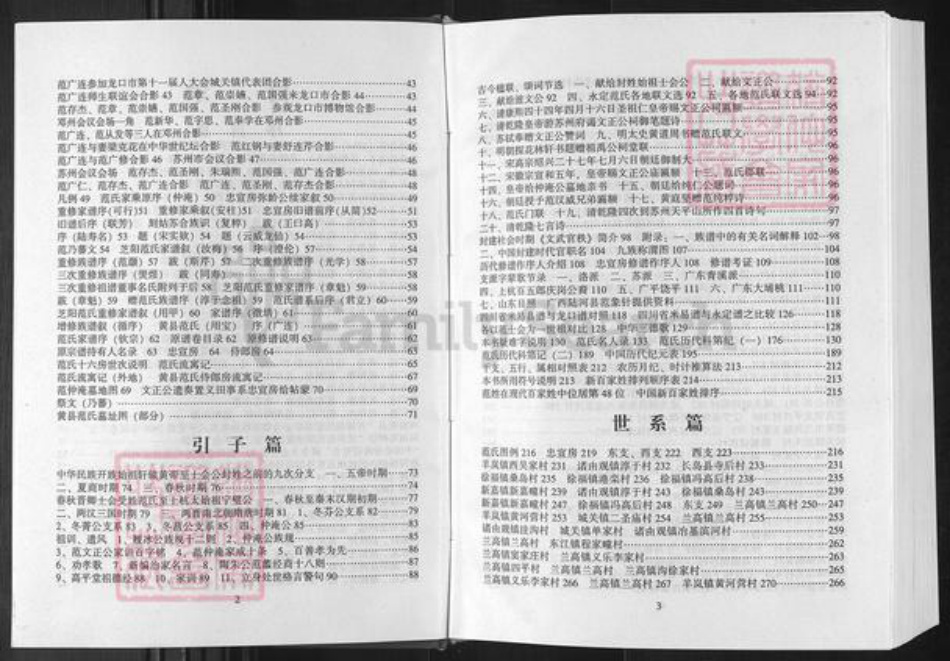 范广连参加龙口市第十一届人大会城关镇代表团合影……43
范广连师生联谊会合影 43 范章、范崇嫡、范国强来龙口市合影 44……43
范存杰、范章、范崇嫡、范国强、范圣刚合影 参观龙口市博物馆合影……44
邓州会议会场一角 范新华、范字思、范奉学在邓州合影……45
范广连、范从发等三人在邓州合影……45
范广连与妻梁克花在中华世纪坛合影 范红钢与妻舒连芹合影……46
范广连与范广修合影 46 苏州市会议合影 47……46
苏州会议会场 范存杰、范圣刚、朱瑞熙、范国强、范广连合影……48
范广仁、范存杰、范广连合影 范广连、范圣刚、范存杰合影……48
凡例 49 范氏家乘原序（仲淹）50 忠宣房弥龄公续家叙 50……49
重修家谱序(可行)51 重修家乘叙(安柱)51 忠宣房旧谱前序(从简)52……51
旧谱后序（联芳） 则姑苏合族识（复粹） 跋（王日高）……53
序（陆寿名）53 题（宋实颖）54 题（云威龙仙）54……53
范乃蕃文 54 芝阳范氏家谱叙（汝梅）56 序（德伦）57……54
重修族谱序（范灏）57 跋（斯芹）57 二次重修族谱序（光学）58……57
三次重修族谱序（贤煜） 跋（同寿）……58
三次重修祖谱董事名氏附列于后 58 芝阳范氏重修家谱序（章魁）59……58
跋（章魁）59 赠范氏族谱序（淳于念祖）59 范氏谱系后序（君立）60……59
芝阳范氏重修家谱叙（用甲）60 家谱序（微炳）61……60
增修族谱叙（循序） 黄县范氏（用宝） 序（广连）……61
范氏家谱序（钦宗）62 原谱卷目录 62 原修谱说明 63……62
原宗谱待有人名录 63 忠宣房 64 侍郎房 64……63
范氏十六房世次说明 范氏流寓记……65
范氏流寓记（外地） 黄县范氏侍郎房流寓记……67
范仲淹墓地图 69 文正公遗奏置义田事系忠宣房给帖蒙 70……69
祭文（乃蕃）……70
黄县范氏墓地图（部分）……71
引子篇
中华民族开族始祖轩辕黄帝至士会公封姓之前的九次分支 一、五帝时期……73
二、夏商时期 74 三、春秋时期 76……74
春秋晋卿士会受姓范氏至上杭太始祖宇璧公 一、春秋至秦末汉期初期……77
二、两汉三国时期 79 两晋南北朝隋唐时期 81 1、冬芬公支系 82……79
2、冬菁公支系 83 3、冬菖公支系 85 四、仲淹公 85……83
祖训、遗风 1、履冰公族规十二则 2、仲淹公族规……85
3、范文正公家训百字铭 4、范仲淹家戒十条 5、百善孝为先……86
6、劝孝歌 7、新编治家名言 8、陶朱公范蠡经商十八则……87
9、高平堂祖德经 88 10、家训 89 11、立身处世格言警句 90……88
2
古今楹联、颂词节选 一、献给封姓始祖士会公 二、献给文正公……92
三、献给渡文公 92 四、永定范氏各地联文选 92 五、各地范氏联文选 94……92
六、清康熙四十四年四月十六日圣祖仁皇帝赐文正公祠匾额……95
七、清乾隆皇帝游苏州府谒文正公祠御笔题诗……95
八、苏轼奉赠文正公赞词 九、明太史黄道周书赠范氏联文……95
十、明朝探花林轩书题赠祖禹公祠堂联……96
十一、宋高宗绍兴二十七年七月六日朝廷御制……96
十二、宋徽宗宣和五年，皇帝赐文正公庙匾额 十三、范氏郡联……96
十四、皇帝给仲淹公墓地亲书 十五、朝廷给纯仁公题词……96
十六、朝廷授于范汉威兄弟匾额 十七、黄庭坚赠范纯粹诗……96
十八、范氏门联 十九、清乾隆四次到苏州天平山所作四首诗句……97
二十、清乾隆七言诗……97
封建社会时期《文武官秩》简介 98 附录：一、族谱中的有关名词解释 102……98
二、中国封建时代官职名 104 九族称谓图 107……104
历代修谱作序人介绍 108 忠宣房修谱作序人 108 修谱考证 109……108
支派字辈歌节录 一、洛派 二、苏派 三、广东黄溪派……110
四、上杭百五郎庆岗公裔 110 五、广平饶平 111 六、广东大埔桃 111……110
七、山东吕照 广西陆河县范象针提供资料……111
四川省米易县谱与龙口谱对照 118 四川省米易谱与永定谱之比较 126……118
各以范士会为一世根对比 128 中华三德歌 129……128
本书疑难字说明 130 范氏名人录 133 范氏历代科第纪（一）176……130
范氏历代科第记（二）189 中国历代纪元表 195……189
干支、五行、属相对照表 212 农历月纪、时计推算法 213……212
本书所用符号说明 213 新百家姓排列顺序表 214……213
范姓在现代百家姓中位居第 48 位 中国新百家姓排序……215
世系篇
范氏图例 216 忠宣房 219 东支、西支 222 西支 223……216
羊岚镇西吴家村 231 诸由观镇淳于村 232 长岛县寺后村 233……231
徐福镇桑岛村 235 徐福镇港栾村 236 徐福镇冯高后村 238……235
新嘉镇新嘉疃村 239 诸由观镇淳于村 243 徐福镇桑岛村 243……239
新嘉镇新嘉疃村 247 徐福镇冯高后村 248 东支 249 兰高镇兰高村 250……247
羊岚镇黄河营村 253 城关镇二圣庙村 254 兰高镇兰高村 255……253
诸由观镇洼沟村 城关镇单家村 诸由观镇冶基滨河村……259
兰高镇兰高村 东江镇程家疃村……262
兰高镇窦家庄村 兰高镇义乐李家村……263
兰高镇四平村 兰高镇兰高村 兰高镇沟徐家村……265
兰高镇义乐李家村 266 兰高镇兰高村 267 羊岚镇黄河营村 270……266
3